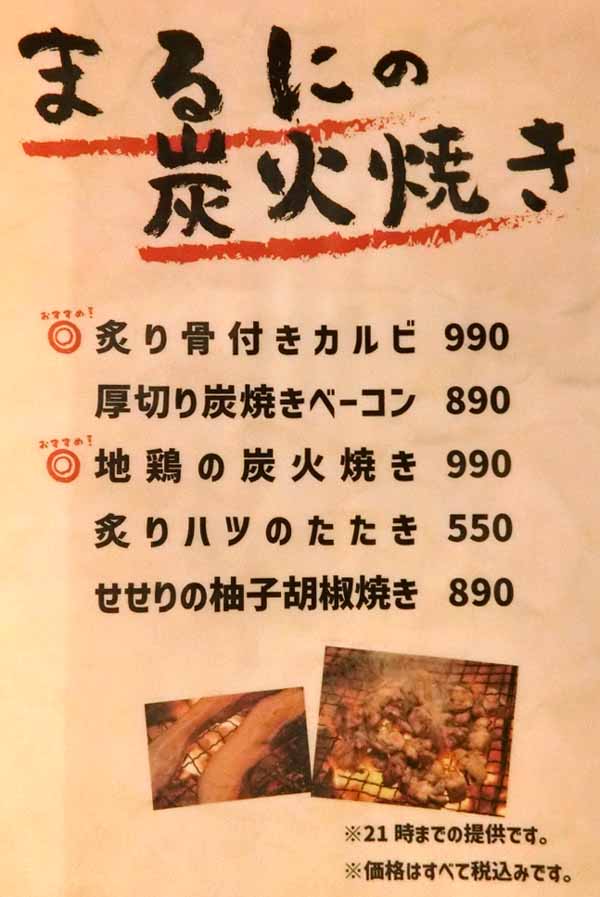 まるにの
炭火焼き
おすすめ!
炙り骨付きカルビ 990
厚切り炭焼きベーコン 890
おすすめ!
地鶏の炭火焼き 990
炙りハツのたたき 550
せせりの柚子胡椒焼き 890
※21時までの提供です。
※価格はすべて税込みです。